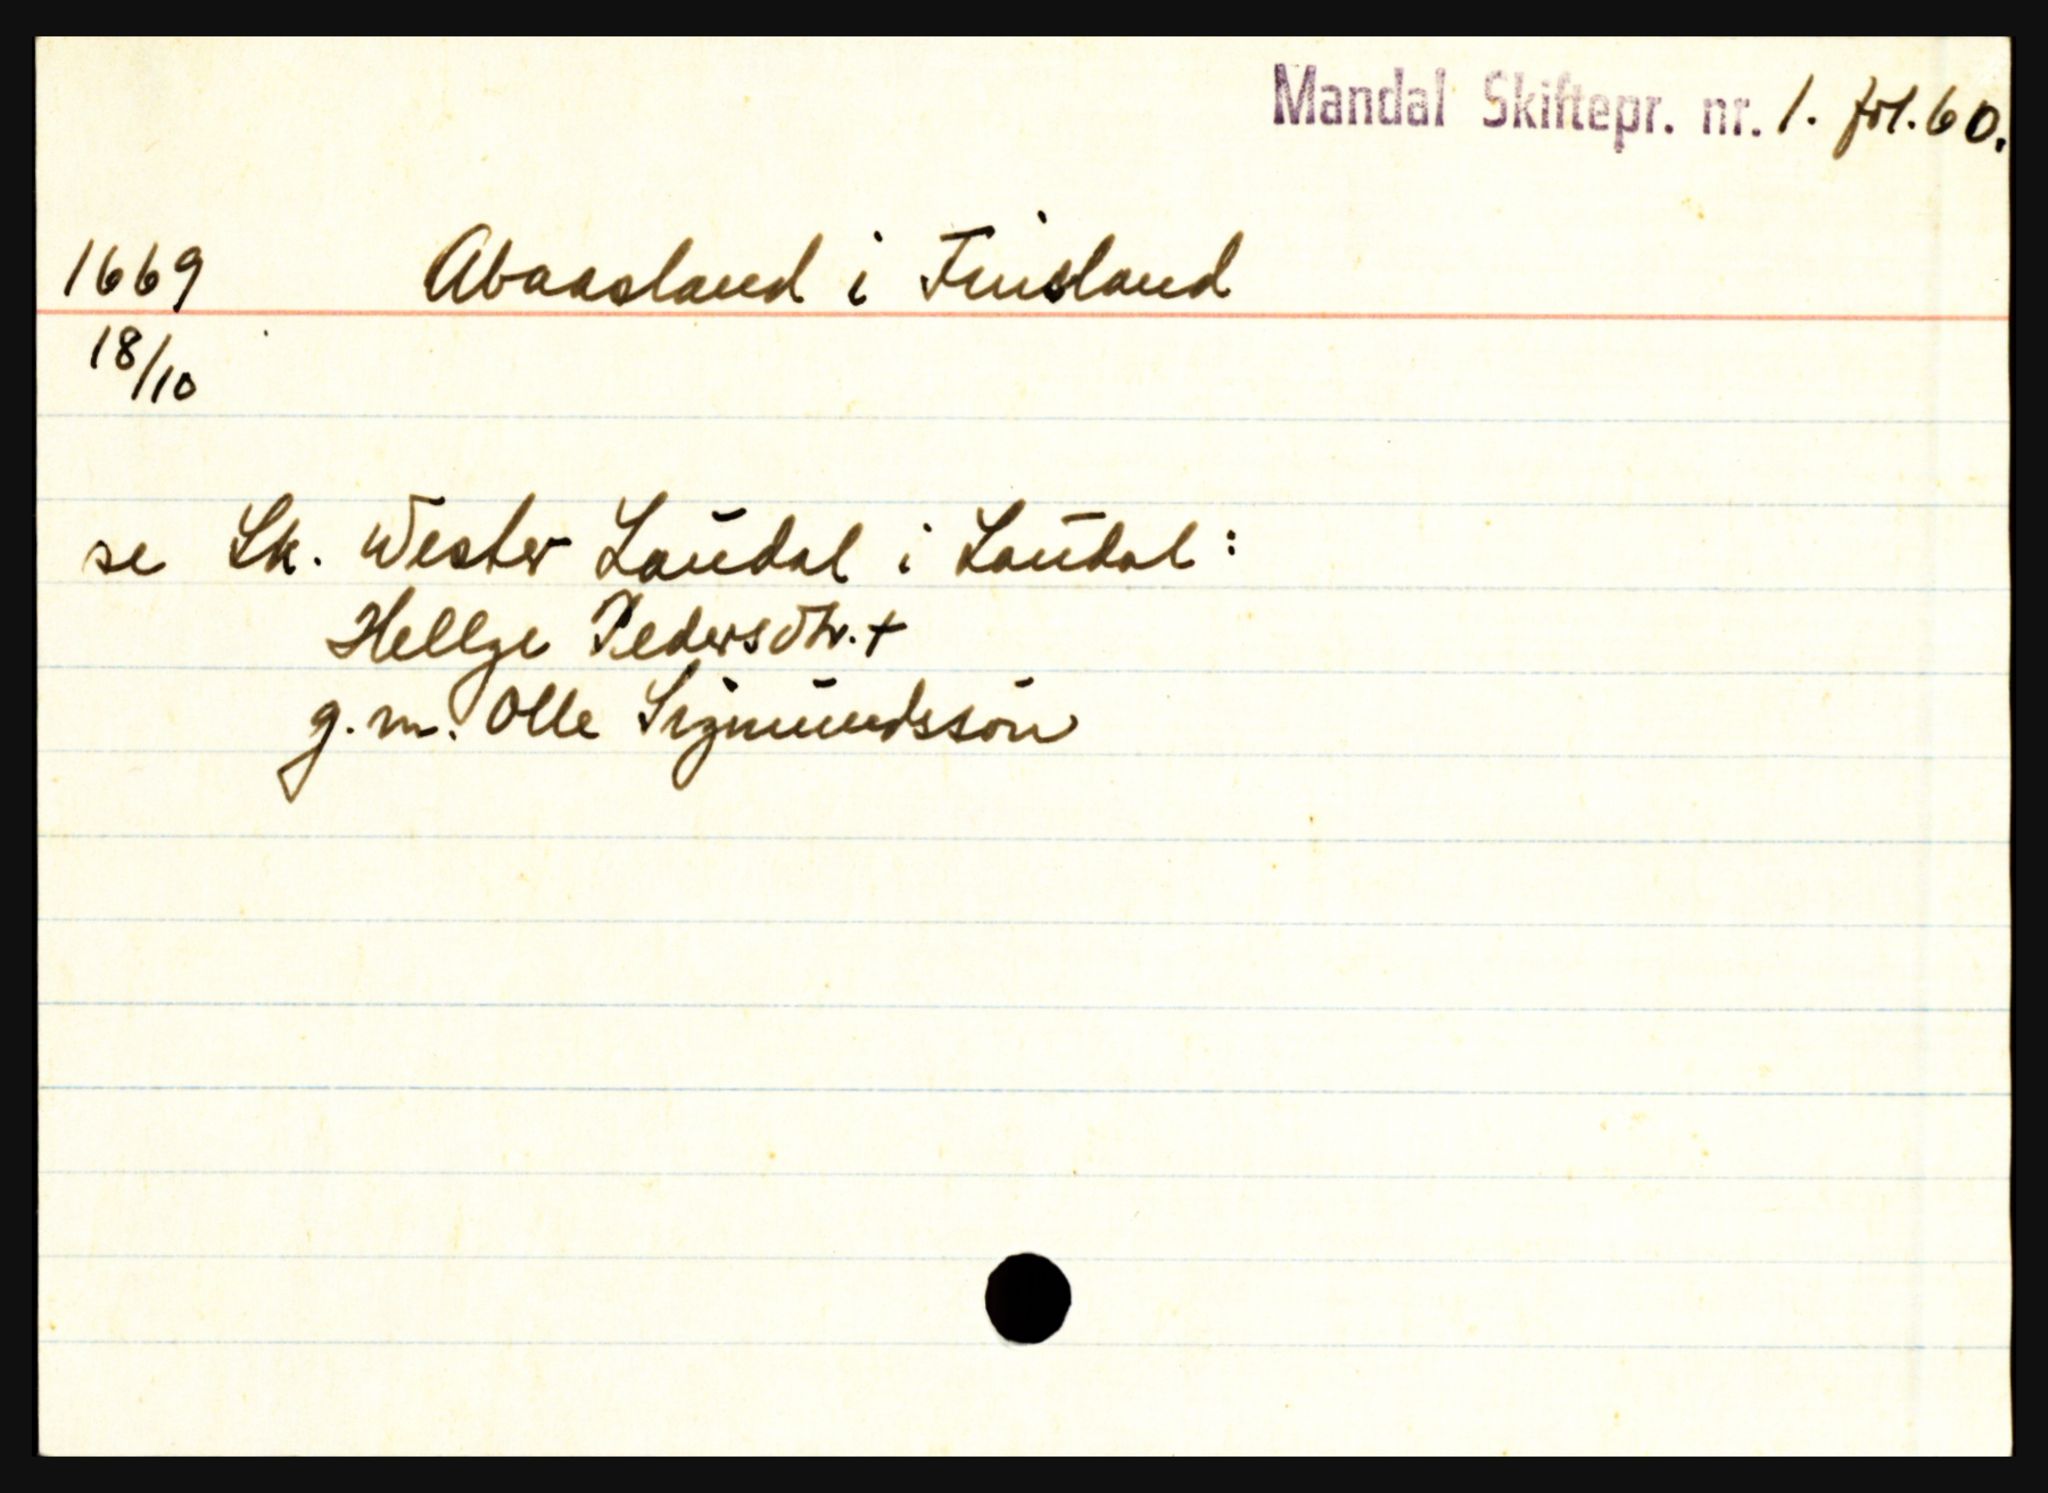 Mandal Skiftepr. nr. 1. fol. 60.
1669 Abaasland i Finsland
18/10
se Sk. Wester Laudal i Laudal:
Hellge Pedersdtr. +
g. m. Olle Sigmundssøn